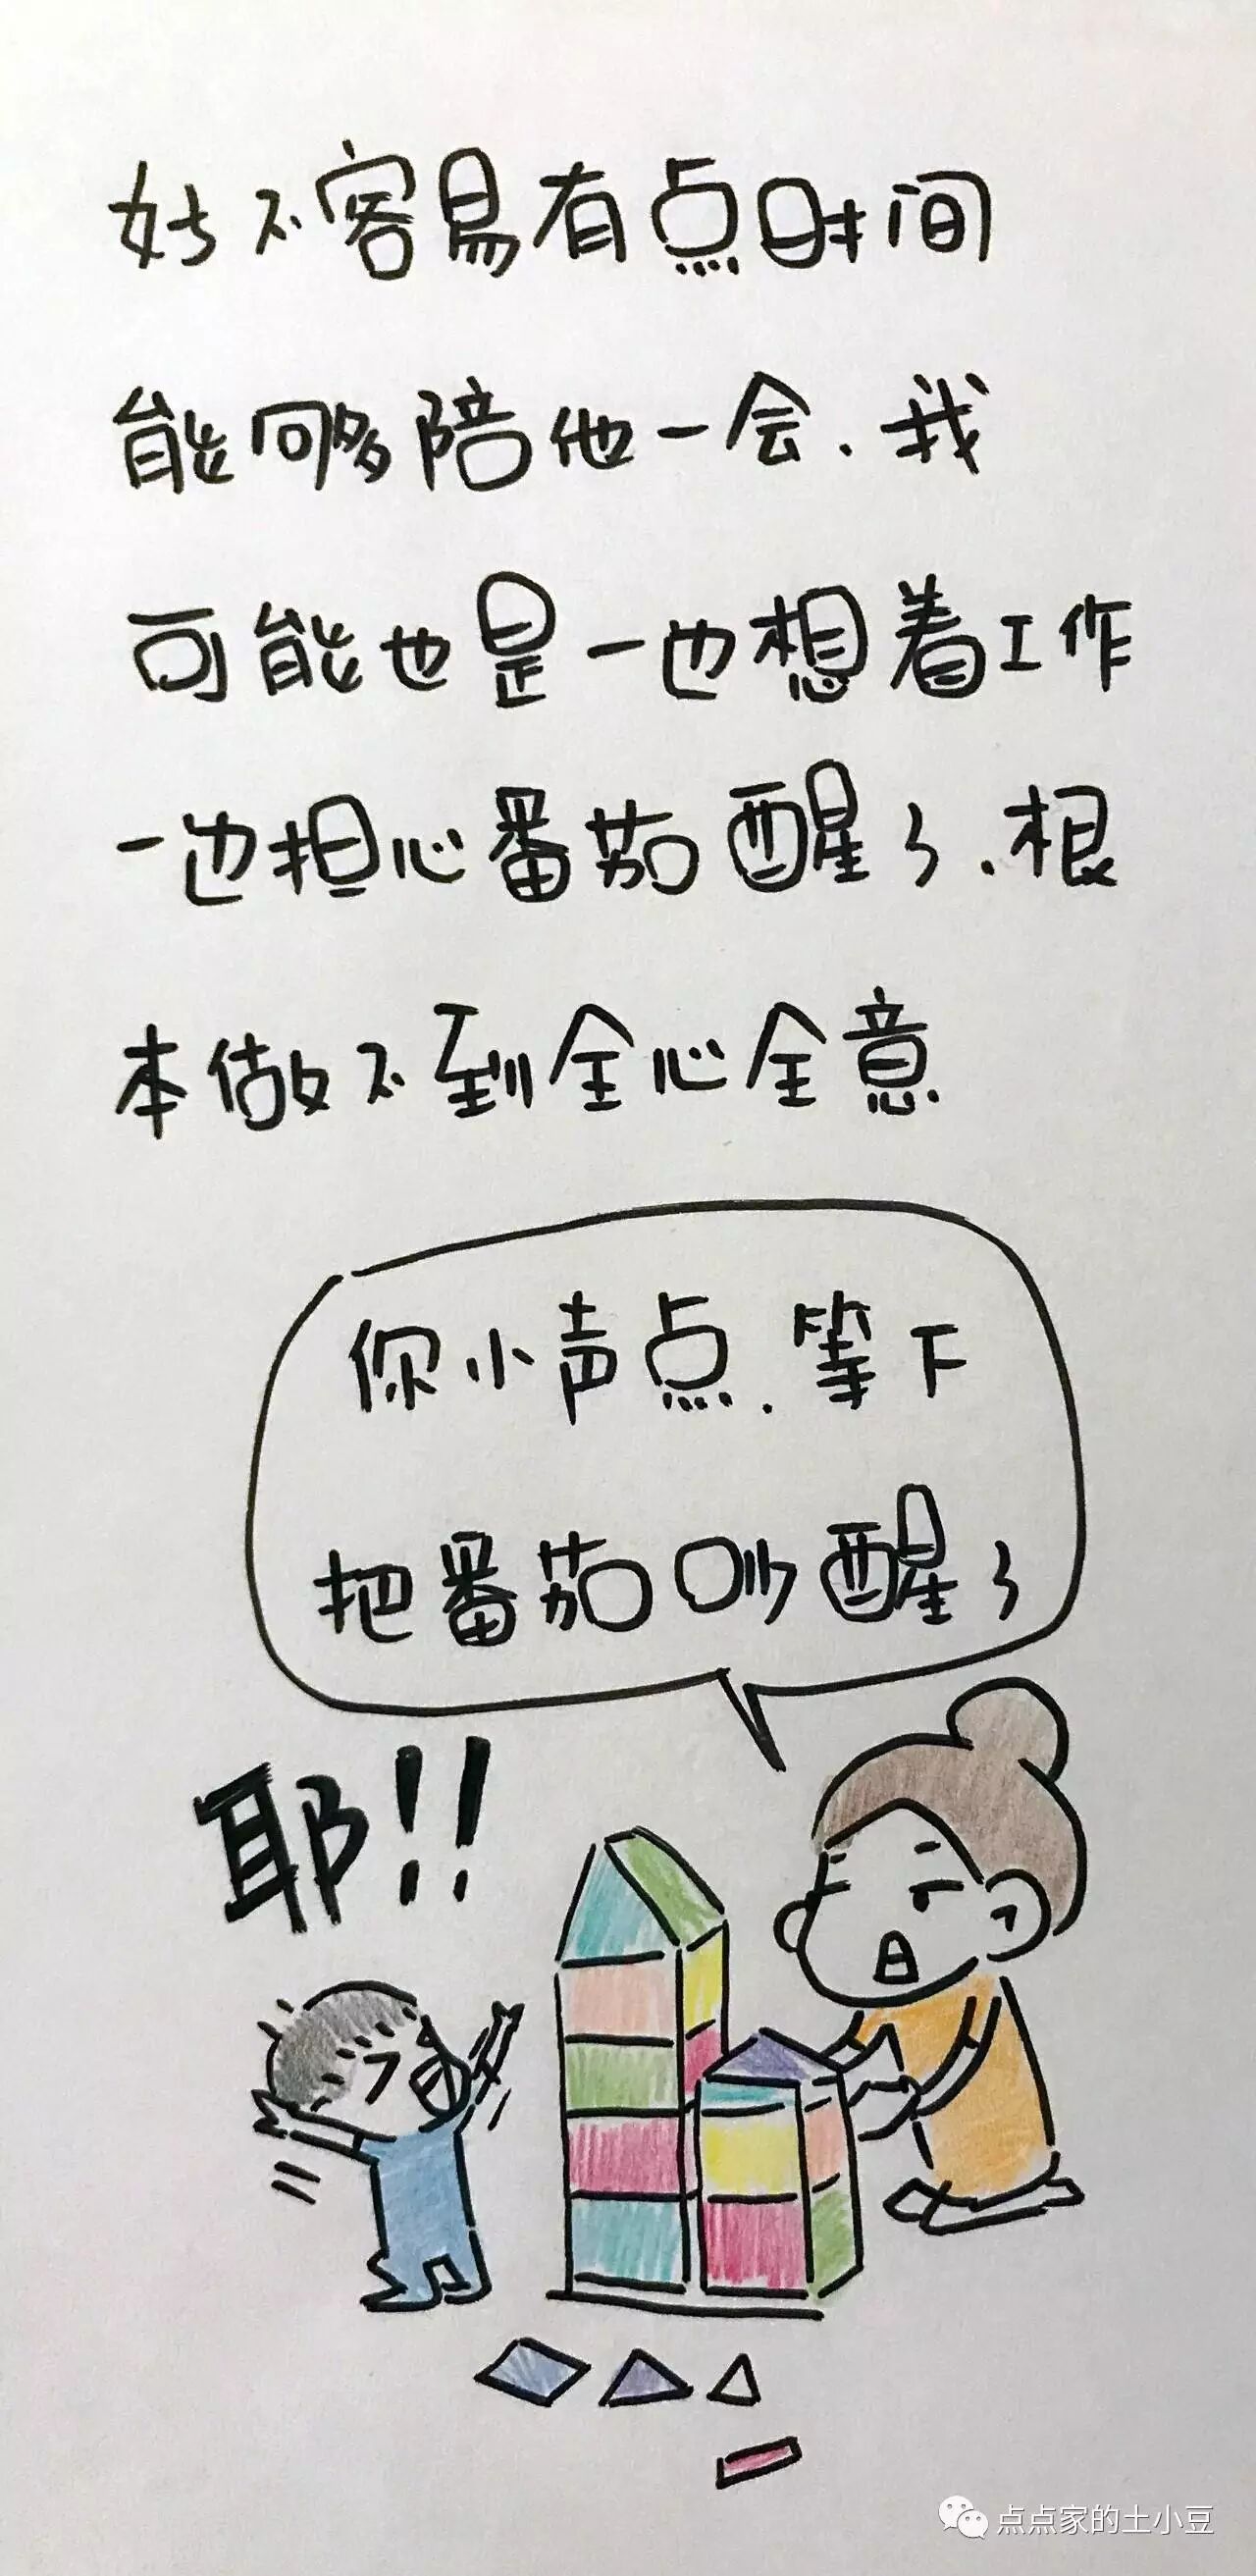 好不容易有点时间
能够陪他一会.我
可能也是一边想着工作
一边担心番茄醒了.根
本做不到全心全意
你小声点.等下
把番茄吵醒了
耶!!
点点家的土小豆